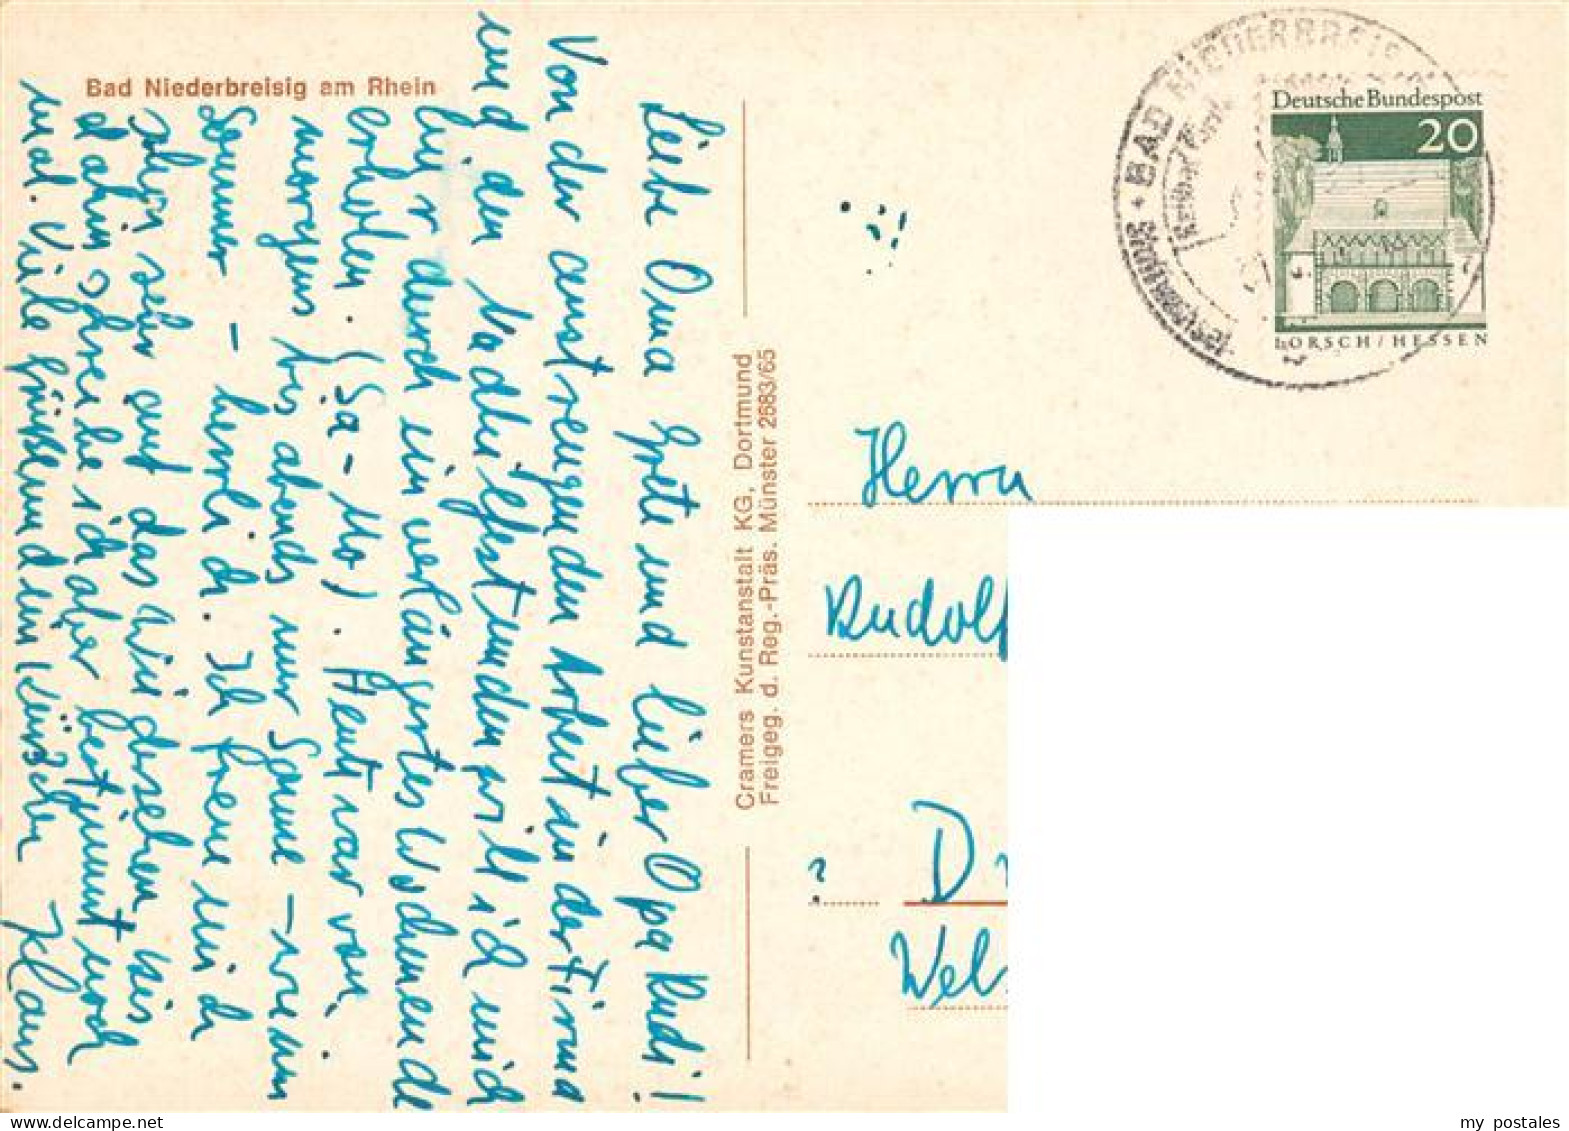 Bad Niederbreisig am Rhein
Liebe Oma Grete und lieber Opa Rudi!
Von der anstrengenden Arbeit in der Firma
und den Nachhilfestunden will ich mich
hier durch ein verlängertes Wochenende
erholen. (Sa-Mo). Heute war von
morgens bis abends nur Sonne - wie im
Sommer - herrlich. Ich freue mich
schon sehr auf das Wiedersehen, bis
dahin schreibe ich aber bestimmt noch
mal. Viele Grüße und ein Küßchen Klaus.
Cramers Kunstanstalt KG, Dortmund
Freigeg. d. Reg.-Präs. Münster 2683/65
BAD NIEDERBREIS
Deutsche Bundespost
20
LORSCH/HESSEN
Herrn
Rudolf
?
D
Wel
my postales